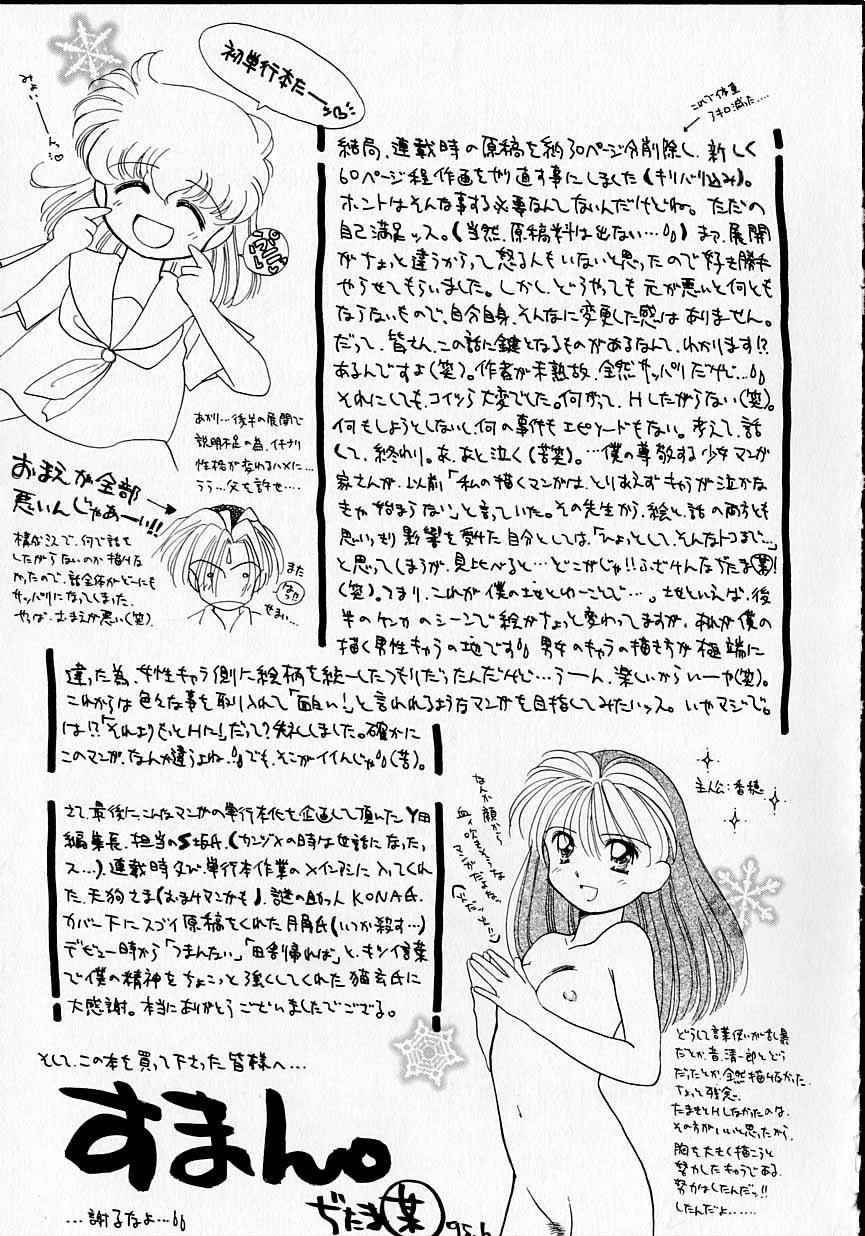 初単行本だー
みょいーんっ
これで体重
7キロ減った....
結局、連載時の原稿を約30ページ分削除し、新しく
60ページ程作画をやり直す事にしました(キリバリ込み)。
ホントはそんな事する必要なんてないんだけどね。ただの
自己満足ッス。(当然、原稿料は出ない…)まっ、展開
がちょっと違うからって怒る人もいないと思ったので好き勝手
やらせてもらいました。しかし、どうやっても元が悪いと何とも
ならないもので、自分自身、そんなに変更した感はありません。
だって、皆さん、この話に鍵となるものがあるなんて、わかります!?
あるんですよ(笑)。作者が未熟故、全然サッパリだけど…
それにしても、コイツら大変でした。何がって、Hしたがらない(笑)。
何もしようとしないし、何の事件もエピソードもない。考えて、話
して、終わり。あ、あと泣く(苦笑)。…僕の尊敬する少女マンガ
家さんが、以前「私の描くマンガは、とりあえずキャラが泣かな
きゃ始まらない」と言っていた。その先生から、絵と話の両方とも
思いっきり影響を受けた自分としては、「ひょっとして、そんなトコまで…」
と思ってしまうが、見比べると…どこがじゃ!!ふざけんなぢたま(某)!
(笑)。つまり、これが僕の地とゆーことで…。地といえば、後
半のケンカのシーンで絵がちょっと変わってますが、あれが僕の
描く男性キャラの地です 男女のキャラの描き方が極端に
違った為、女性キャラ側に絵柄を統一したつもりだったんだけど…うーん、楽しいからいーや(笑)。
これからは色々な事を取り入れて「面白い!」と言われるようなマンガを目指してみたいッス。いやマジで。
は!?「それよりもっとHに!」だって?失礼しました。確かに
このマンガ、なんか違うよね、でも、そこがイイんじゃ(苦)。
あかり…後半の展開で
説明不足の為、イキナリ
性格が変わるハメに…
うう…父を許せ….
おまえが全部
悪いんじゃあーい!!
構成上で、何で話を
したがらないのか描けな
かったので、話全体がどーにも
サッパリになってしまった.
やっぱ、おまえが悪い(笑)
また
せまい…
さて、最後にこんなマンガの単行本化を企画して頂いたY田
編集長、担当のS坂氏、(カンヅメの時は世話になったッ
ス…)、連載時及び、単行本作業のメインアシに入ってくれ
た、天狗さま(おまけマンガも)、謎の助っ人KONA氏、
カバー下にスゴイ原稿をくれた月角氏(いつか殺す…)
デビュー時から「つまんない」「田舎帰れば」と、キツイ言葉
で僕の精神をちょこっと強くしてくれた猫玄氏に
大感謝。本当にありがとうございましたでござる。
なんか顔から
血ィ吹きそうな
マンガだよねぇ
主人公:香穂
どうして言葉使いが乱暴
だとか、昔、清一郎とどう
だったとか、全然描けなかった.
ちょっと残念.
たまきとHしなかったのは、
その方がいいと思ったから.
胸を大きく描こうと
努力したキャラである.
努力はしたんだッ!!
したんだよ……..
そして、この本を買って下さった皆様へ…
すまん。
…謝るなよ…
ぢたま(某)
95.6